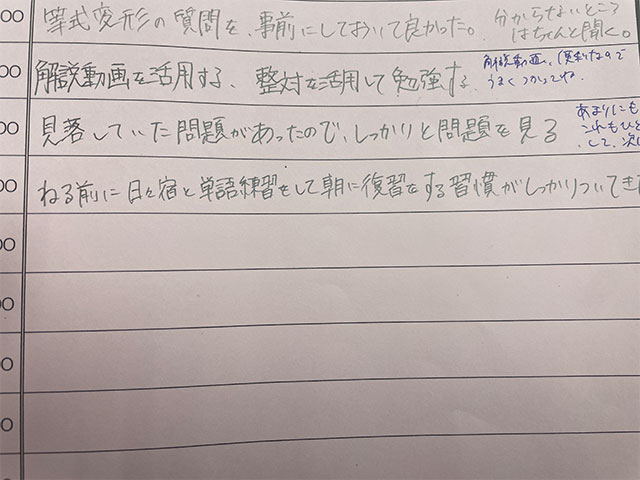 00 等式変形の質問を、事前にしておいて良かった。 分からないところ
はちゃんと聞く。
00 解説動画を活用する、整対を活用して勉強する。 解説動画、便利なので
うまくつかってね。
00 見落していた問題があったので、しっかりと問題を見る あまりにも
これもひと
して、次に
00 ねる前に日々宿と単語練習をして朝に復習をする習慣がしっかりついてきた
00
00
00
00
00